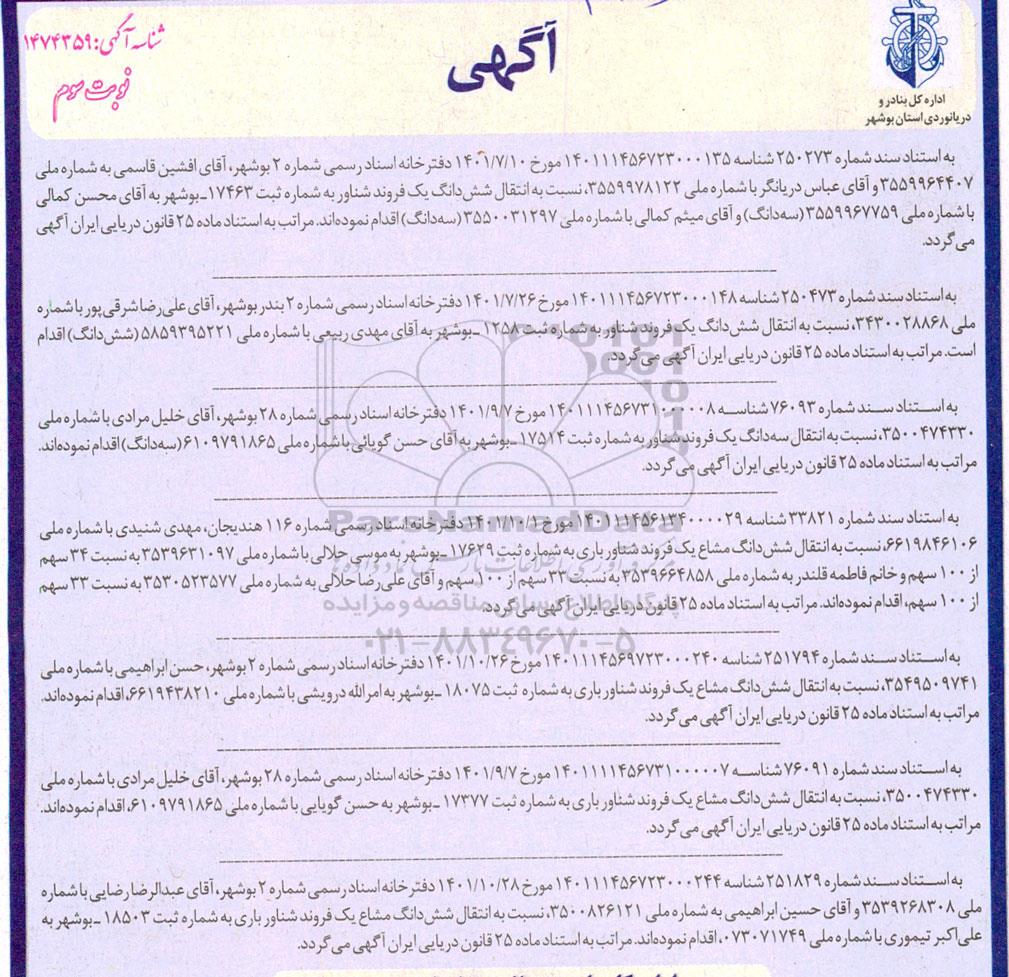 شناسه آگهی: ۱۴۷۴۳۵۹
نوبت سوم
آگهی
اداره کل بنادر و
دریانوردی استان بوشهر
به استناد سند شماره ۲۵۰۲۷۳ شناسه ۱۴۰۱۱۱۴۵۶۷۲۳۰۰۰۱۳۵ مورخ ۱۴۰۱/۷/۱۰ دفترخانه اسناد رسمی شماره ۲ بوشهر، آقای افشین قاسمی به شماره ملی
۳۵۵۹۹۶۴۴۰۷ و آقای عباس دریانگر با شماره ملی ۳۵۵۹۹۷۸۱۲۲، نسبت به انتقال شش‌دانگ یک فروند شناور به شماره ثبت ۱۷۴۶۳ـ بوشهر به آقای محسن کمالی
با شماره ملی ۳۵۵۹۹۶۷۷۵۹ (سه‌دانگ) و آقای میثم کمالی با شماره ملی ۳۵۵۰۰۳۱۲۹۷ (سه‌دانگ) اقدام نموده‌اند. مراتب به استناد ماده ۲۵ قانون دریایی ایران آگهی
می‌گردد.
به استناد سند شماره ۲۵۰۴۷۳ شناسه ۱۴۰۱۱۱۴۵۶۷۲۳۰۰۰۱۴۸ مورخ ۱۴۰۱/۷/۲۶ دفترخانه اسناد رسمی شماره ۲ بندر بوشهر، آقای علی‌رضا شرقی‌پور با شماره
ملی ۳۴۳۰۰۲۸۸۶۸، نسبت به انتقال شش‌دانگ یک فروند شناور به شماره ثبت ۱۲۵۸ ـ بوشهر به آقای مهدی ربیعی با شماره ملی ۵۸۵۹۳۹۵۲۲۱ (شش‌دانگ) اقدام
است. مراتب به استناد ماده ۲۵ قانون دریایی ایران آگهی می‌گردد.
به استناد سند شماره ۷۶۰۹۳ شناسه ۱۴۰۱۱۱۴۵۶۷۳۱۰۰۰۰۰۸ مورخ ۱۴۰۱/۹/۷ دفترخانه اسناد رسمی شماره ۲۸ بوشهر، آقای خلیل مرادی با شماره ملی
۳۵۰۰۴۷۴۳۳۰، نسبت به انتقال سه‌دانگ یک فروند شناور به شماره ثبت ۱۷۵۱۴ ـ بوشهر به آقای حسن گویائی با شماره ملی ۶۱۰۹۷۹۱۸۶۵ (سه‌دانگ) اقدام نموده‌اند.
مراتب به استناد ماده ۲۵ قانون دریایی ایران آگهی می‌گردد.
به استناد سند شماره ۳۳۸۲۱ شناسه ۱۴۰۱۱۱۴۵۶۱۳۴۰۰۰۰۲۹ مورخ ۱۴۰۱/۱۰/۱ دفترخانه اسناد رسمی شماره ۱۱۶ هندیجان، مهدی شنیدی با شماره ملی
۶۶۱۹۸۴۶۱۰۶، نسبت به انتقال شش‌دانگ مشاع یک فروند شناور باری به شماره ثبت ۱۷۶۲۹ ـ بوشهر به موسی جلالی با شماره ملی ۳۵۳۹۶۳۱۰۹۷ به نسبت ۳۴ سهم
از ۱۰۰ سهم و خانم فاطمه قلندر به شماره ملی ۳۵۳۹۶۶۴۸۵۸ به نسبت ۳۳ سهم از ۱۰۰ سهم و آقای علی‌رضا جلالی به شماره ملی ۳۵۳۰۵۲۳۵۷۷ به نسبت ۳۳ سهم
از ۱۰۰ سهم، اقدام نموده‌اند. مراتب به استناد ماده ۲۵ قانون دریایی ایران آگهی می‌گردد.
به استناد سند شماره ۲۵۱۷۹۴ شناسه ۱۴۰۱۱۱۴۵۶۹۷۲۳۰۰۰۲۴۰ مورخ ۱۴۰۱/۱۰/۲۶ دفترخانه اسناد رسمی شماره ۲ بوشهر، حسن ابراهیمی با شماره ملی
۳۵۴۹۵۰۹۷۴۱، نسبت به انتقال شش‌دانگ مشاع یک فروند شناور باری به شماره ثبت ۱۸۰۷۵ ـ بوشهر به امرالله درویشی با شماره ملی ۶۶۱۹۴۳۸۲۱۰، اقدام نموده‌اند.
مراتب به استناد ماده ۲۵ قانون دریایی ایران آگهی می‌گردد.
به استناد سند شماره ۷۶۰۹۱ شناسه ۱۴۰۱۱۱۱۴۵۶۷۳۱۰۰۰۰۰۷ مورخ ۱۴۰۱/۹/۷ دفترخانه اسناد رسمی شماره ۲۸ بوشهر، آقای خلیل مرادی با شماره ملی
۳۵۰۰۴۷۴۳۳۰، نسبت به انتقال شش‌دانگ مشاع یک فروند شناور باری به شماره ثبت ۱۷۳۷۷ ـ بوشهر به حسن گویایی با شماره ملی ۶۱۰۹۷۹۱۸۶۵، اقدام نموده‌اند.
مراتب به استناد ماده ۲۵ قانون دریایی ایران آگهی می‌گردد.
به استناد سند شماره ۲۵۱۸۲۹ شناسه ۱۴۰۱۱۱۴۵۶۷۲۳۰۰۰۲۴۴ مورخ ۱۴۰۱/۱۰/۲۸ دفترخانه اسناد رسمی شماره ۲ بوشهر، آقای عبدالرضا رضایی با شماره
ملی ۳۵۳۹۲۶۸۳۰۸ و آقای حسین ابراهیمی به شماره ملی ۳۵۰۰۸۲۶۱۲۱، نسبت به انتقال شش‌دانگ مشاع یک فروند شناور باری به شماره ثبت ۱۸۵۰۳ ـ بوشهر به
علی‌اکبر تیموری با شماره ملی ۰۷۳۰۷۱۷۴۹، اقدام نموده‌اند. مراتب به استناد ماده ۲۵ قانون دریایی ایران آگهی می‌گردد.
ParsNamadData
پایگاه اطلاع رسانی مناقصه و مزایده
۰۲۱-۸۸۳۴۹۶۷۰-۵